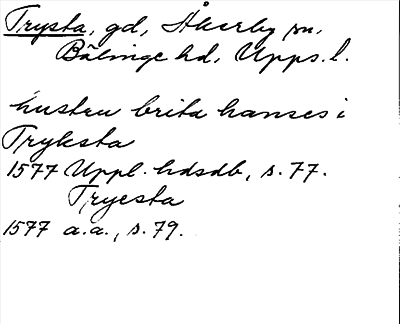 Trysta, gd, Åkerby sn.
Bälinge hd, Upps. l.
hustru brita hanses i
Tryksta
1577 Uppl. hdsdb, s. 77.
Tryesta
1577 a.a., s. 79.